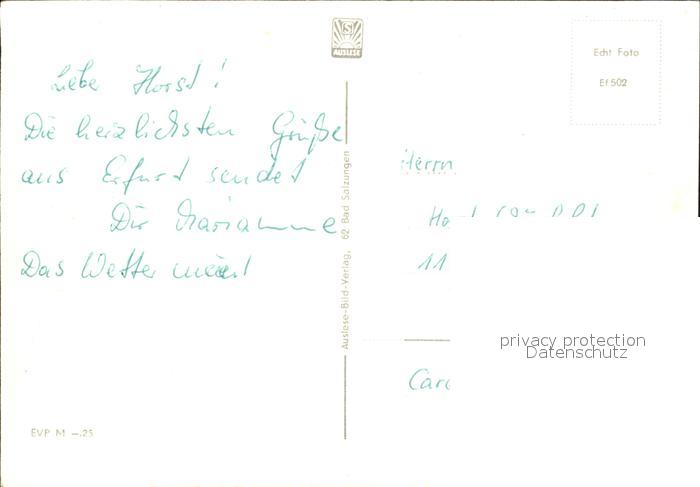 Liebe Horst!
Die herzlichsten Grüße
aus Erfurt sendet
Dir Marianne
Das Wetter
EVP M —.25
Auslese-Bild-Verlag, 62 Bad Salzungen
AUSLESE
Echt Foto
Ef 502
Herrn
11
privacy protection
Datenschutz